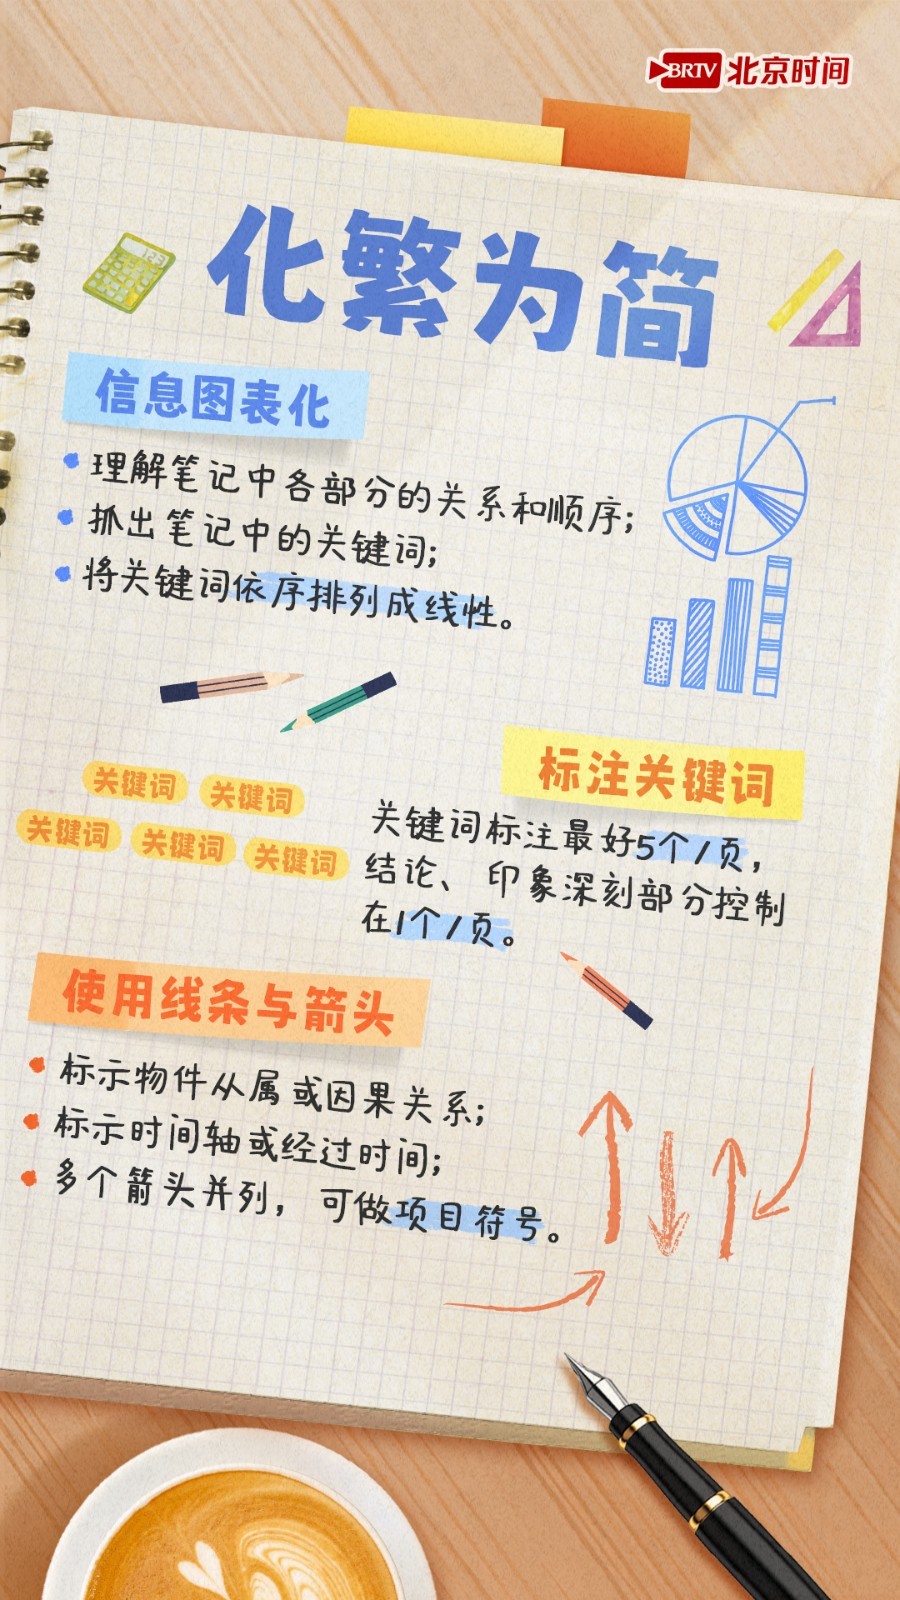 BRTV 北京时间
化繁为简
123
信息图表化
理解笔记中各部分的关系和顺序;
抓出笔记中的关键词;
将关键词依序排列成线性。
标注关键词
关键词 关键词
关键词 关键词 关键词
关键词标注最好5个/页,
结论、印象深刻部分控制
在1个/页。
使用线条与箭头
标示物件从属或因果关系;
标示时间轴或经过时间;
多个箭头并列,可做项目符号。